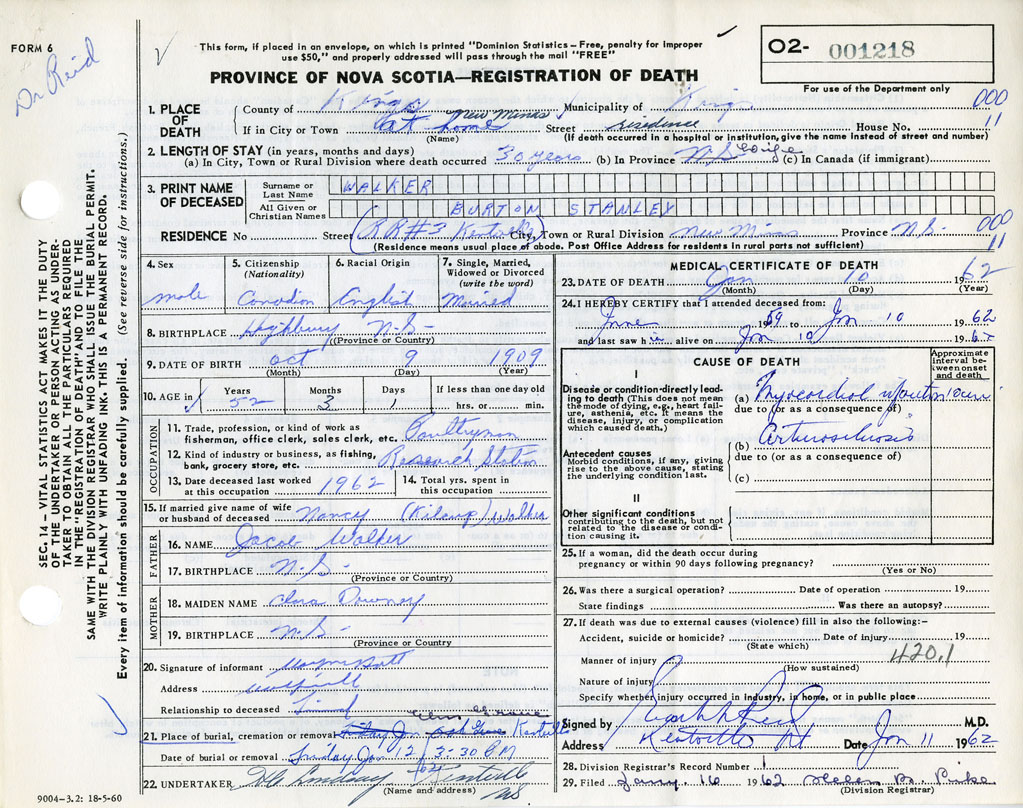 FORM 6
Dr Reid
This form, if placed in an envelope, on which is printed "Dominion Statistics – Free, penalty for improper
use $50," and properly addressed will pass through the mail "FREE"
PROVINCE OF NOVA SCOTIA—REGISTRATION OF DEATH
O2- 001218
For use of the Department only
000
11
1. PLACE OF DEATH
County of Kings Municipality of Kings
New Minas
If in City or Town at home Street residence House No.
(Name) (If death occurred in a hospital or institution, give the name instead of street and number)
2. LENGTH OF STAY (in years, months and days)
(a) In City, Town or Rural Division where death occurred 30 years (b) In Province N.S. life (c) In Canada (if immigrant)
3. PRINT NAME OF DECEASED
Surname or Last Name WALKER
All Given or Christian Names BURTON STANLEY
RESIDENCE No Street RR#3 Kentville City, Town or Rural Division New Minas Province N.S.
000
11
(Residence means usual place of abode. Post Office Address for residents in rural parts not sufficient)
4. Sex
male
5. Citizenship (Nationality)
Canadian
6. Racial Origin
English
7. Single, Married, Widowed or Divorced (write the word)
Married
8. BIRTHPLACE Highbury N.S.
(Province or Country)
9. DATE OF BIRTH Oct 9 1909
(Month) (Day) (Year)
10. AGE in
Years 52 Months 3 Days 1 If less than one day old
hrs. or min.
OCCUPATION
11. Trade, profession, or kind of work as
fisherman, office clerk, sales clerk, etc. Poultryman
12. Kind of industry or business, as fishing,
bank, grocery store, etc. Research Station
13. Date deceased last worked
at this occupation 1962
14. Total yrs. spent in
this occupation
15. If married give name of wife
or husband of deceased Nancy (Kilcup) Walker
FATHER
16. NAME Jacob Walker
17. BIRTHPLACE N.S.
(Province or Country)
MOTHER
18. MAIDEN NAME Clara Downey
19. BIRTHPLACE N.S.
(Province or Country)
20. Signature of informant
Address Wolfville
Relationship to deceased Friend
21. Place of burial, cremation or removal Elm Grove Kentville
Date of burial or removal Friday Jan 12/62 3:30 PM
22. UNDERTAKER Lindsay Kentville NS
(Name and address)
9004-3.2: 18-5-60
MEDICAL CERTIFICATE OF DEATH
23. DATE OF DEATH Jan 10 1962
(Month) (Day) (Year)
24. I HEREBY CERTIFY that I attended deceased from:
June 1959 to Jan 10 1962
and last saw him alive on Jan 10 1962
CAUSE OF DEATH
Approximate interval between onset and death
I
Disease or condition directly leading
to death (This does not mean
the mode of dying, e.g., heart failure,
asthenia, etc. It means the
disease, injury, or complication
which caused death.)
(a) Myocardial infarction
due to (or as a consequence of)
Arteriosclerosis
Antecedent causes
Morbid conditions, if any, giving
rise to the above cause, stating
the underlying condition last.
(b)
due to (or as a consequence of)
(c)
II
Other significant conditions
contributing to the death, but not
related to the disease or condition
causing it.
25. If a woman, did the death occur during
pregnancy or within 90 days following pregnancy?
(Yes or No)
26. Was there a surgical operation? Date of operation 19
State findings Was there an autopsy?
27. If death was due to external causes (violence) fill in also the following:-
Accident, suicide or homicide? Date of injury 19
(State which)
Manner of injury 420.1
(How sustained)
Nature of injury
Specify whether injury occurred in industry, in home, or in public place
Signed by Reid M.D.
Address Kentville NS Date Jan 11 1962
28. Division Registrar's Record Number 1
29. Filed Jany. 16 1962 Helen B. Pike
(Division Registrar)
SEC. 14 – VITAL STATISTICS ACT MAKES IT THE DUTY
OF THE UNDERTAKER OR PERSON ACTING AS UNDERTAKER
TO OBTAIN ALL THE PARTICULARS REQUIRED
IN THE "REGISTRATION OF DEATH" AND TO FILE THE
SAME WITH THE DIVISION REGISTRAR WHO SHALL ISSUE THE BURIAL PERMIT.
WRITE PLAINLY WITH UNFADING INK. THIS IS A PERMANENT RECORD.
Every item of information should be carefully supplied. (See reverse side for instructions.)